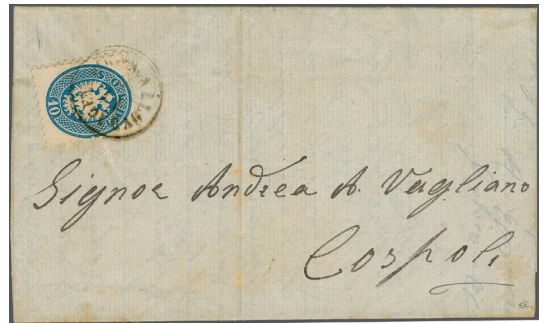 10
Signor Andrea A. Vagliano
Cospoli
a.